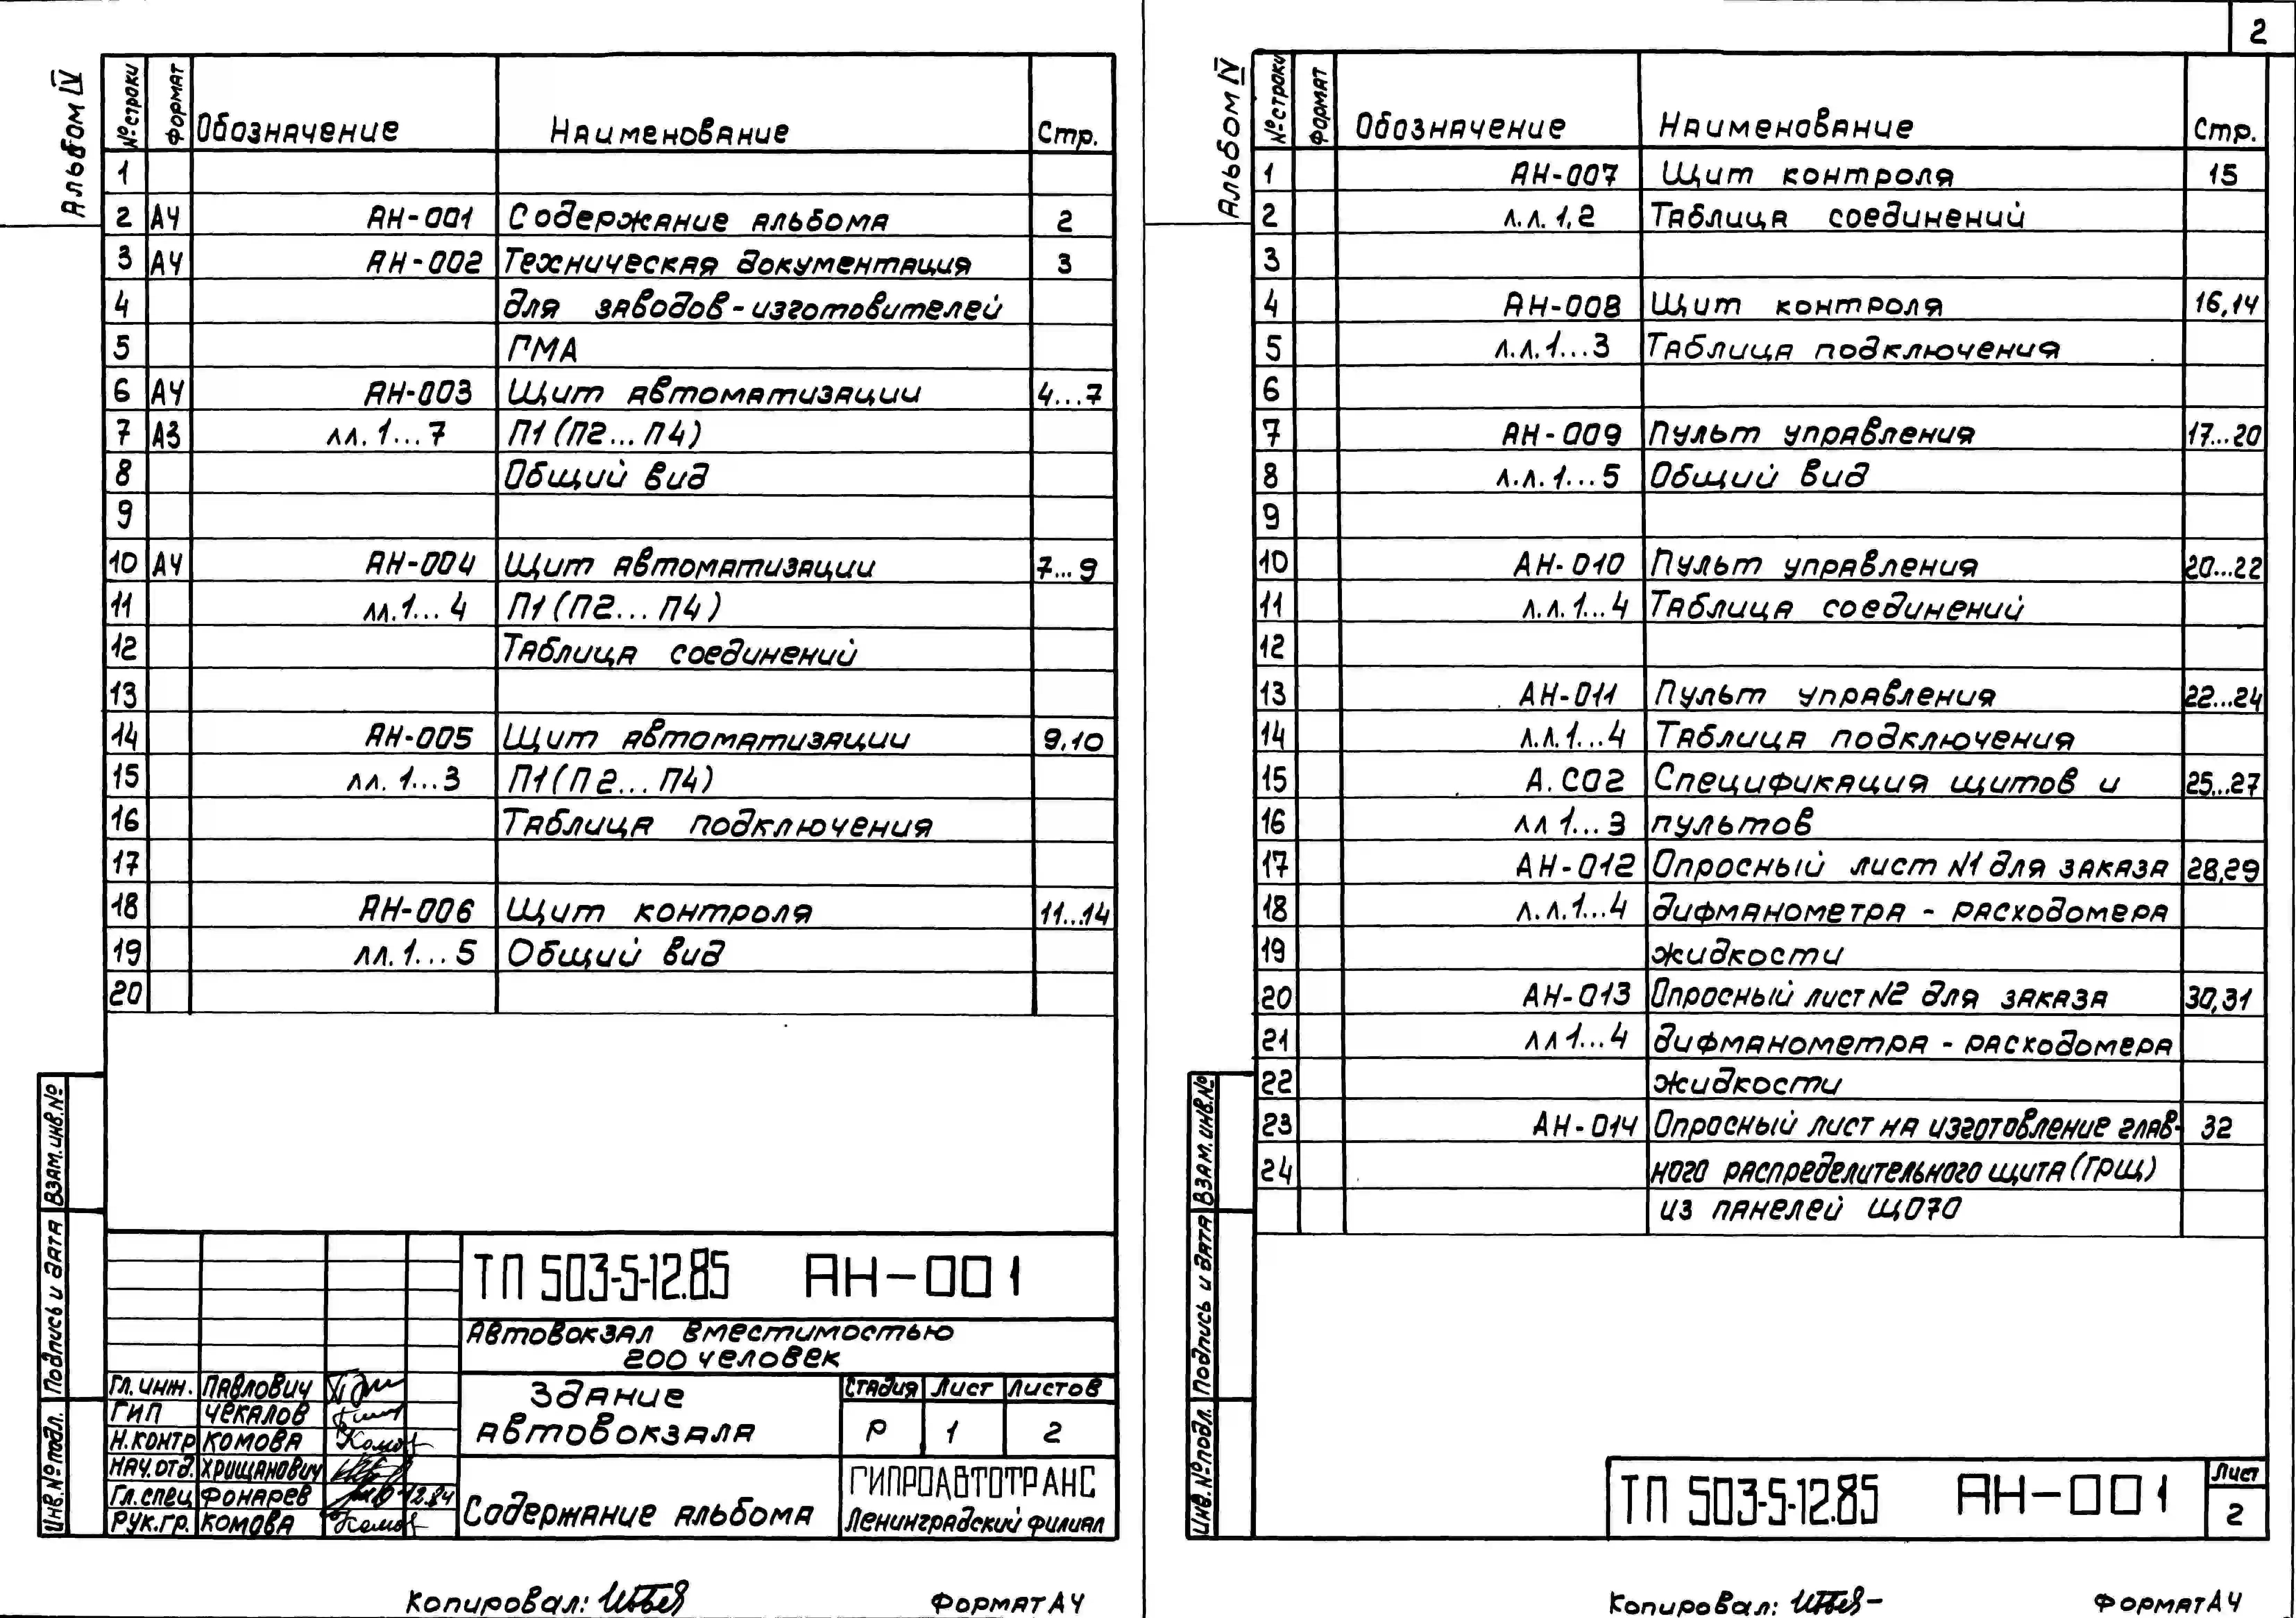 Альбом IV
№ строки Формат Обозначение Наименование Стр.
1
2 А4 АН-001 Содержание альбома 2
3 А4 АН-002 Техническая документация 3
4 для заводов-изготовителей
5 ГМА
6 А4 АН-003 Щит автоматизации 4...7
7 А3 лл. 1...7 П1 (П2... П4)
8 Общий вид
9
10 А4 АН-004 Щит автоматизации 7...9
11 лл. 1... 4 П1 (П2... П4)
12 Таблица соединений
13
14 АН-005 Щит автоматизации 9,10
15 лл. 1...3 П1 (П2... П4)
16 Таблица подключения
17
18 АН-006 Щит контроля 11...14
19 лл. 1...5 Общий вид
20
ТП 503-5-12.85 АН-001
Автовокзал вместимостью
200 человек
Гл. инж. Павлович
ГИП Чекалов
Н.контр Комова
Нач.отд. Хрищанович
Гл.спец Фонарев 12.84
Рук.гр. Комова
Здание
автовокзала
Стадия Лист Листов
Р 1 2
Содержание альбома
ГИПРОАВТОТРАНС
Ленинградский филиал
Взам.инв.№
Подпись и дата
Инв.№подл.
Копировал:
Формат А4
2
Альбом IV
№ строки Формат Обозначение Наименование Стр.
1 АН-007 Щит контроля 15
2 л.л. 1,2 Таблица соединений
3
4 АН-008 Щит контроля 16,14
5 л.л. 1...3 Таблица подключения
6
7 АН-009 Пульт управления 17...20
8 л.л. 1...5 Общий вид
9
10 АН-010 Пульт управления 20...22
11 л.л. 1...4 Таблица соединений
12
13 АН-011 Пульт управления 22...24
14 л.л. 1...4 Таблица подключения
15 А.СО2 Спецификация щитов и 25...27
16 лл 1...3 пультов
17 АН-012 Опросный лист №1 для заказа 28,29
18 л.л. 1...4 дифманометра - расходомера
19 жидкости
20 АН-013 Опросный лист №2 для заказа 30,31
21 лл 1...4 дифманометра - расходомера
22 жидкости
23 АН-014 Опросный лист на изготовление глав- 32
24 ного распределительного щита (ГРЩ)
из панелей ЩО70
Взам.инв.№
Подпись и дата
Инв.№подл.
ТП 503-5-12.85 АН-001
Лист
2
Копировал:
Формат А4